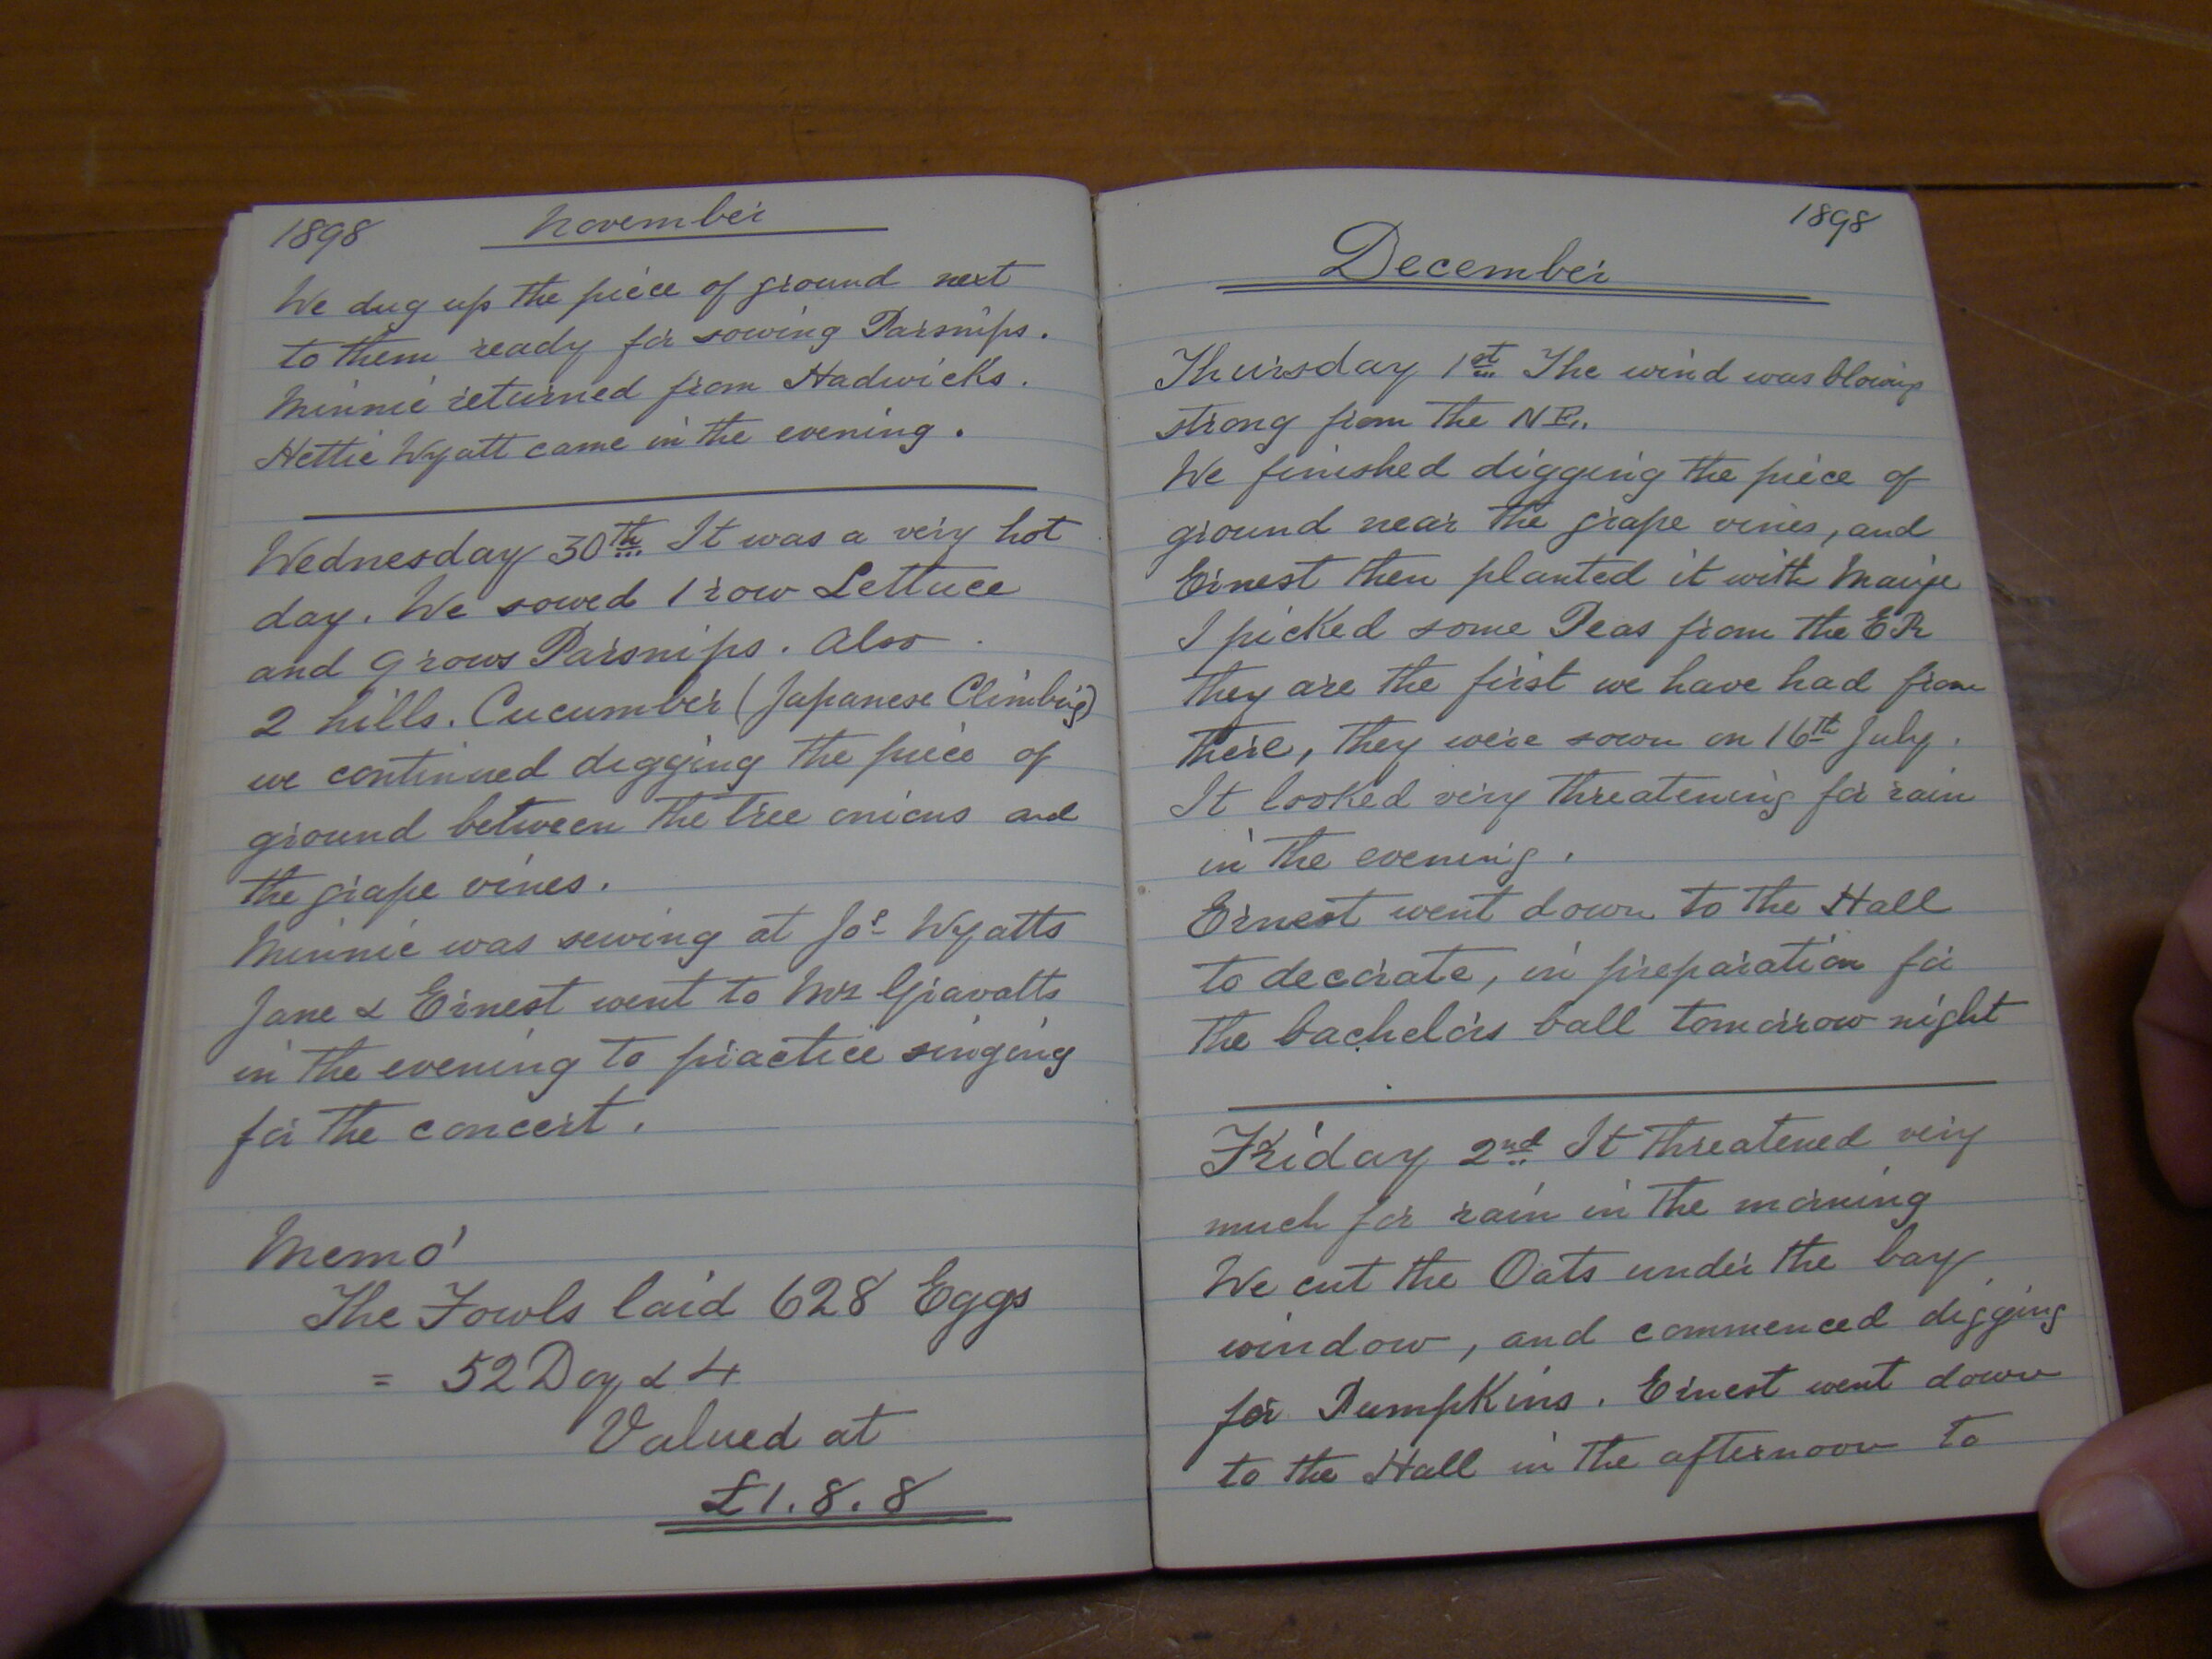 1898 November
We dug up the piece of ground next
to them ready for sowing Parsnips.
Minnie returned from Hadwicks.
Hettie Wyatt came in the evening.
Wednesday 30th It was a very hot
day. We sowed 1 row Lettuce
and 9 rows Parsnips. Also
2 hills. Cucumber (Japanese Climbing)
we continued digging the piece of
ground between the tree onions and
the grape vines.
Minnie was sewing at Jos Wyatts
Jane & Ernest went to Mrs Gravatts
in the evening to practice singing
for the concert.
Memo
The Fowls laid 628 Eggs
= 52 Doz & 4
Valued at
£1.8.8
1898
December
Thursday 1st The wind was blowing
strong from the NE.
We finished digging the piece of
ground near the grape vines, and
Ernest then planted it with Maize
I picked some Peas from the ER
they are the first we have had from
there, they were sown on 16th July.
It looked very threatening for rain
in the evening.
Ernest went down to the Hall
to decorate, in preparation for
the bachelors ball tomorrow night
Friday 2nd It threatened very
much for rain in the morning
We cut the Oats under the bay
window, and commenced digging
for Pumpkins. Ernest went down
to the Hall in the afternoon to